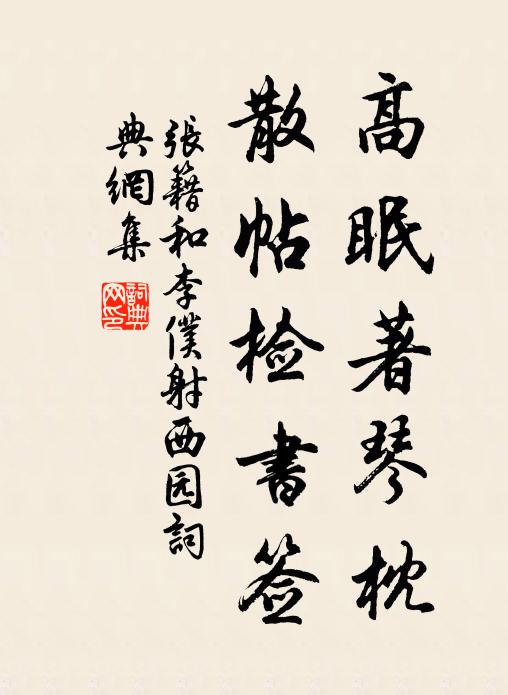 高眠著琴枕
散帖检書签
張籍和李僕射西园詞
典網集
詞典网印